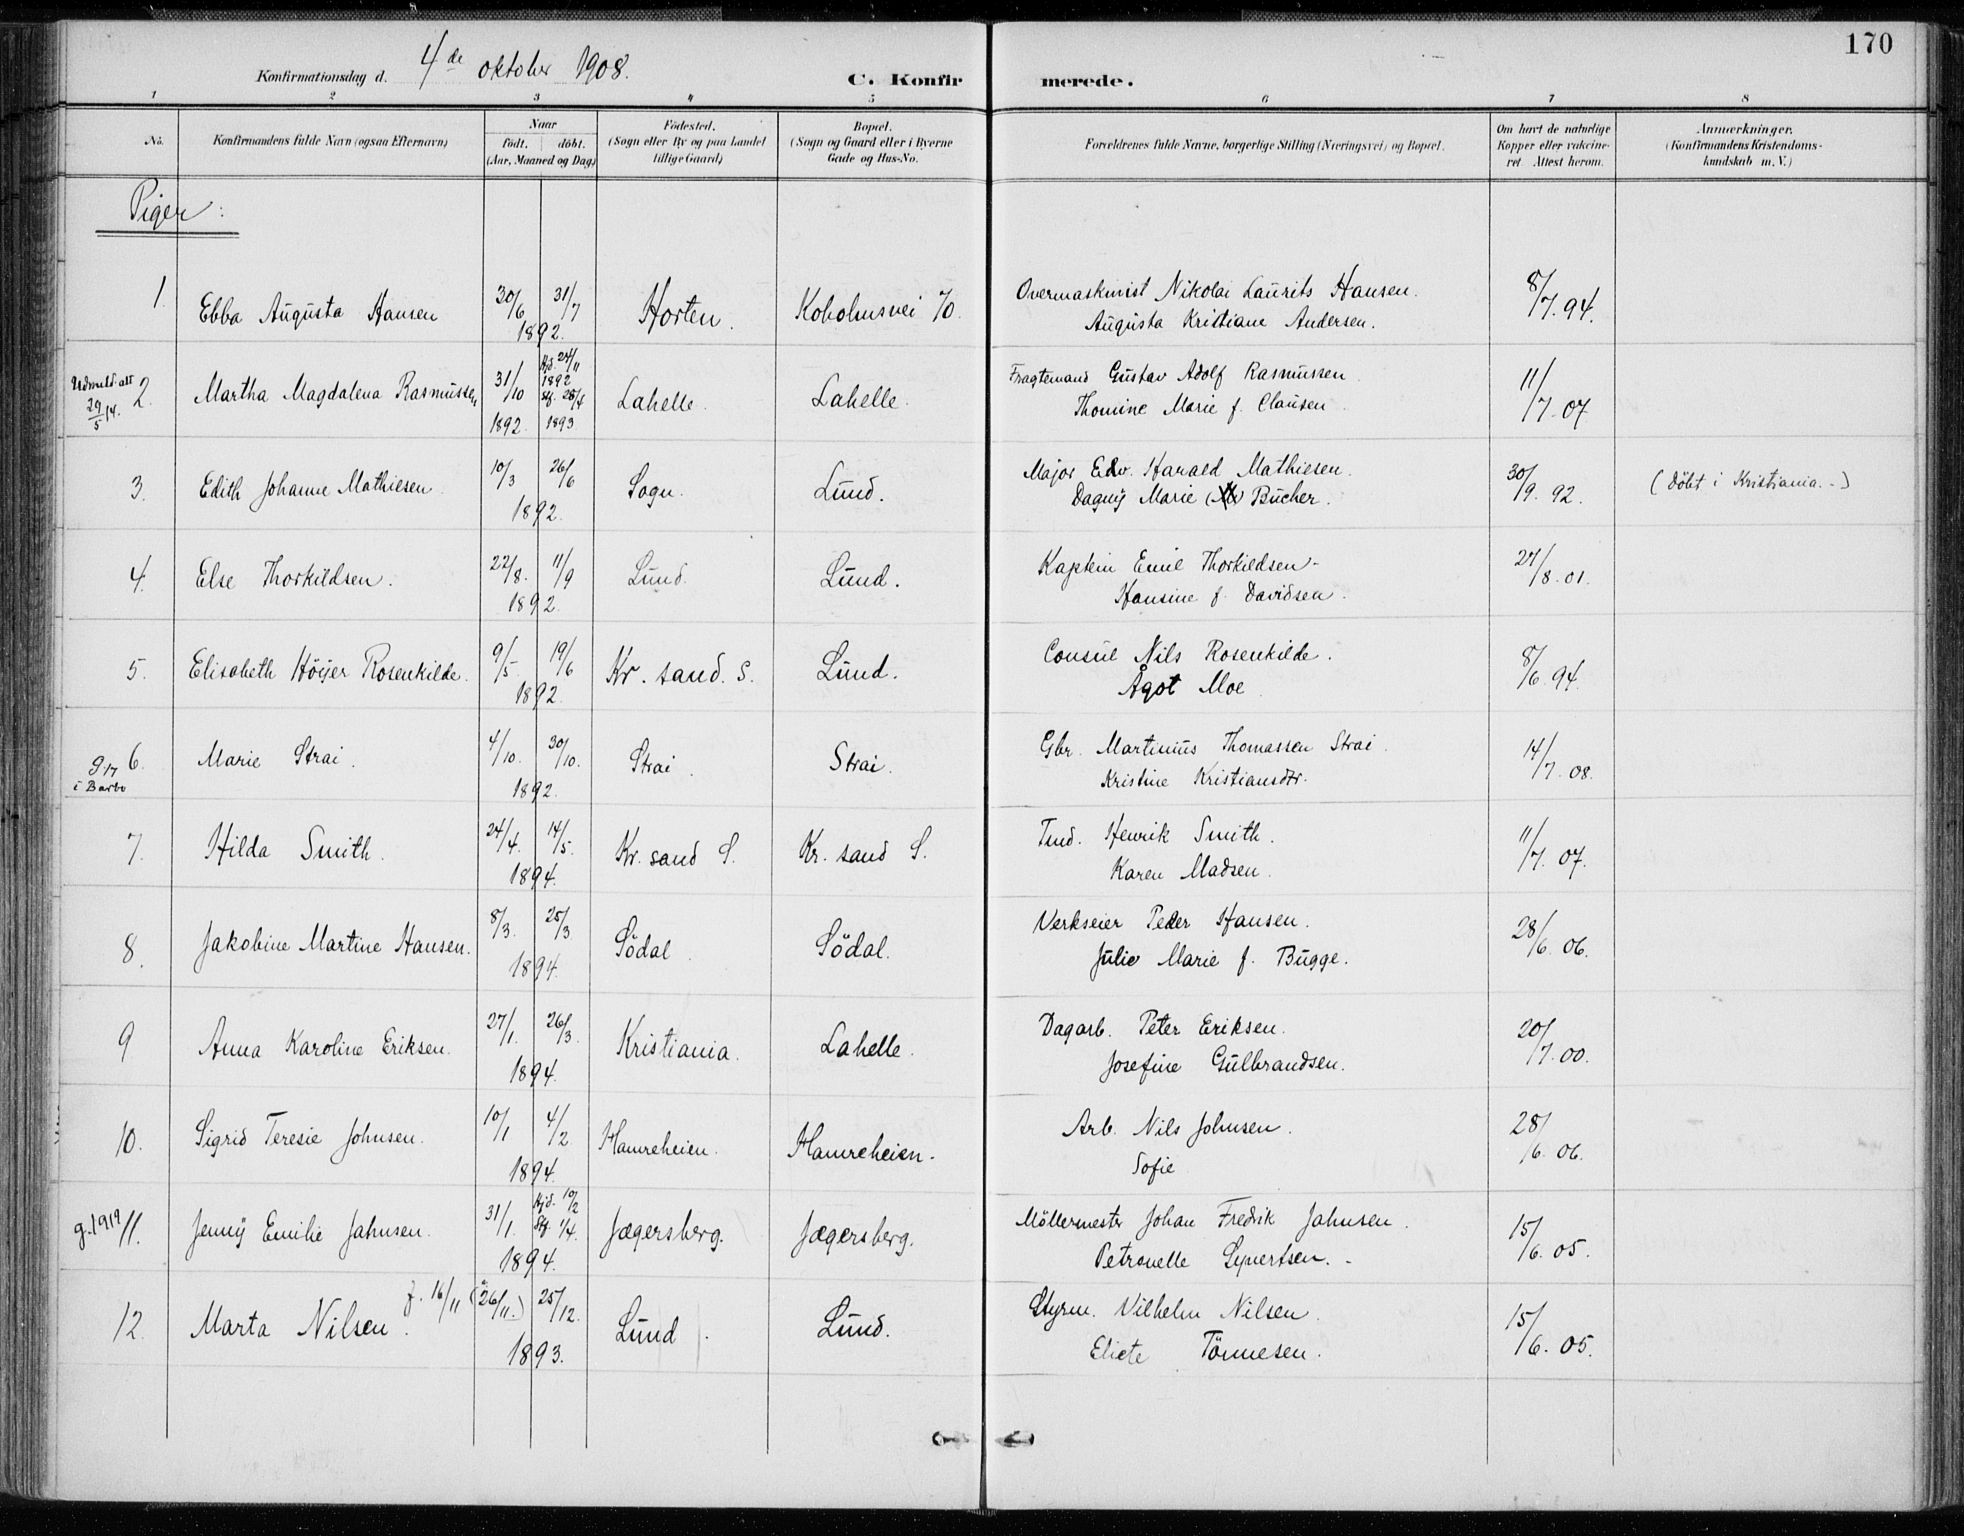 170
Konfirmationsdag d. 4de oktober 1908.
C. Konfirmerede.
1 2 3 4 5 6 7 8
No.
Konfirmandens fulde Navn (ogsaa Efternavn)
Naar
födt. döbt.
(Aar, Maaned og Dag)
Födested.
(Sogn eller By og paa Landet
tillige Gaard)
Bopæl.
(Sogn og Gaard eller i Byerne
Gade og Hus-No.
Forældrenes fulde Navne, borgerlige Stilling (Næringsvei) og Bopæl.
Om havt de naturlige
Kopper eller vakcine-
ret. Attest herom.
Anmærkninger.
(Konfirmandens Kristendoms-
kundskab m. V.)
Piger:
1. Ebba Augusta Hansen 30/6 31/7 1892. Horten. Koholmsvei 70. Overmaskinist Nikolai Laurits Hansen. 8/7. 94.
Augusta Kristiane Andersen.
Udmeld. att 29/5 14.
2. Martha Magdalena Rasmussen 31/10 1892. Hjd. 27/11 1892 stf. 28/4 1893 Lahelle. Lahelle. Fragtemand Gustav Adolf Rasmussen 11/7. 07
Thomine Marie f. Clausen
3. Edith Johanne Mathiesen 10/3 26/6 1892. Sogn. Lund. Major Edv. Harald Mathiesen. 30/9. 92. (döbt i Kristiania.-)
Dagny Marie Bucher.
4. Else Thorkildsen. 22/8. 11/9 1892. Lund. Lund. Kaptein Emil Thorkildsen- 27/8. 01.
Hansine f. Davidsen.
5. Elisabeth Höyer Rosenkilde. 9/5 19/6 1892. Kr. sand. S. Lund. Consul Nils Rosenkilde. 8/6. 94.
Ågot Moe.
g. 17 i Barbo
6. Marie Strai. 4/10. 30/10. 1892. Strai. Strai. Gbr. Martinius Thomassen Strai. 14/7. 08.
Kristine Kristiansdtr.
7. Hilda Smith. 24/4. 14/5. 1894. Kr. sand S. Kr. sand S. Tmd. Henrik Smith. 11/7. 07.
Karen Madsen.
8. Jakobine Martine Hansen. 8/3. 25/3 1894. Södal. Södal. Verkseier Peder Hansen. 28/6. 06.
Julie Marie f. Bugge.
9 Anna Karoline Eriksen. 27/1. 26/3. 1894. Kristiania. Lahelle. Dagarb. Peter Eriksen. 20/7. 00.
Josefine Gulbrandsen.
10. Sigrid Teresie Johnsen. 10/1 4/2. 1894. Hamreheien. Hamreheien. Arb. Nils Johnsen. 28/6. 06.
Sofie
g. 1919
11. Jenny Emilie Jahnsen. 31/1. Hjd. 10/2 stf. 1/4. 1894. Jægersberg. Jægersberg. Möllermester Johan Fredrik Jahnsen. 15/6. 05.
Petronelle Syvertsen.-
12. Marta Nilsen. f. 16/11 (26/11.) 25/12. 1893. Lund. Lund. Styrm. Vilhelm Nilsen. 15/6. 05.
Eliete Tönnesen.